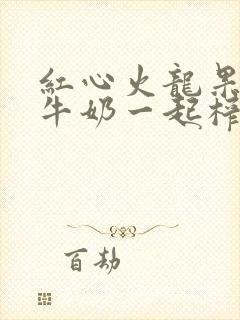 紅心火龍果
牛奶一起榨
百劫